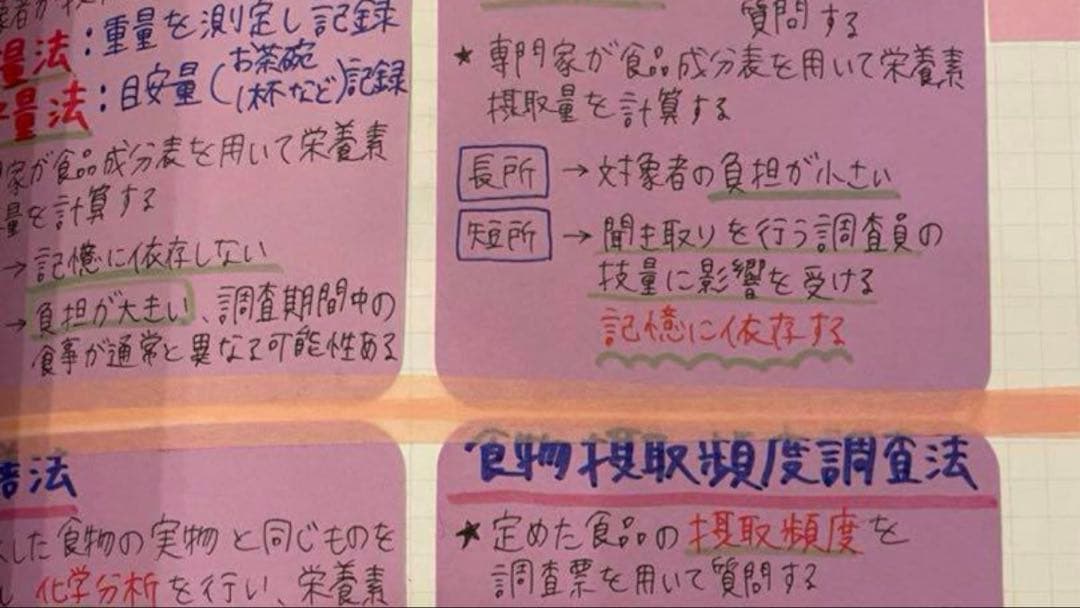 量法：重量を測定し記録
量法：目安量(お茶碗1杯など)記録
家が食品成分表を用いて栄養素
量を計算する
→記憶に依存しない
→負担が大きい、調査期間中の
食事が通常と異なる可能性ある
質問する
★専門家が食品成分表を用いて栄養素
摂取量を計算する
長所→対象者の負担が小さい
短所→聞き取りを行う調査員の
技量に影響を受ける
記憶に依存する
法
した食物の実物と同じものを
し化学分析を行い、栄養素
食物摂取頻度調査法
★定めた食品の摂取頻度を
調査票を用いて質問する